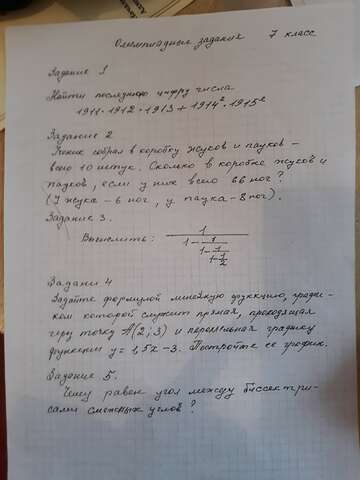 Олимпиадные задания 7 класс
Задание 1
Найти последнюю цифру числа
1911·1912·1913+1914²·1915²
Задание 2
собрал в коробку жуков и пауков –
всего 10 штук. Сколько в коробке жуков и
пауков, если у них всего 66 ног?
(У жука – 6 ног, у паука – 8 ног).
Задание 3.
Вычислить: 1
1 - 1
1 - 1
1 - 1
2
Задани 4
Задайте формулой линейную функцию, графи-
ком которой служит прямая, проходящая
через точку А(2;3) и параллельная графику
функции y = 1,5x – 3. Постройте её график.
Задание 5.
Чему равен угол между биссектри-
сами смежных углов?